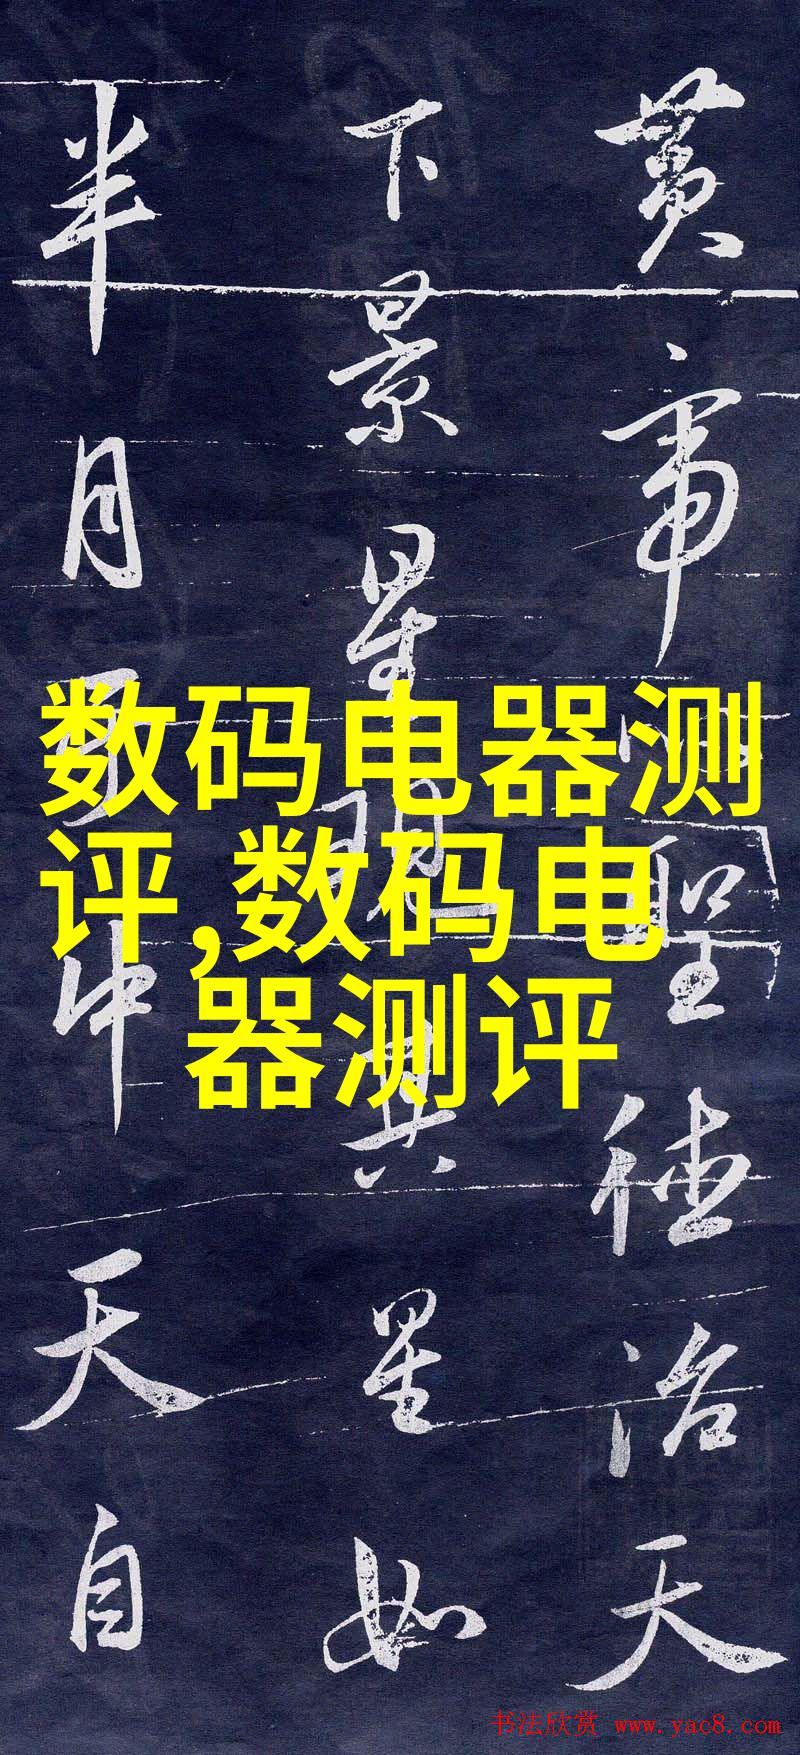 黄帝聖德治天
下景星其星如
半月中天自
数码电器测
评,数码电
器测评
书法欣赏 www.yac8.com